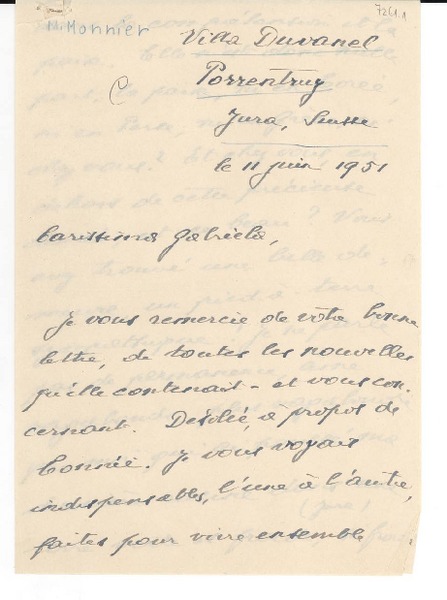 M. Monnier
7261.1
Villa Duvanel
Porrentruy
Jura, Suisse
le 11 juin 1951
Carissima Gabriela,
Je vous remercie de votre bonne
lettre, de toutes les nouvelles
qu'elle contenait - et vous con-
cernant. Désolée, à propos de
Connie. Je vous voyais
indispensables, l'une à l'autre,
faites pour vivre ensemble